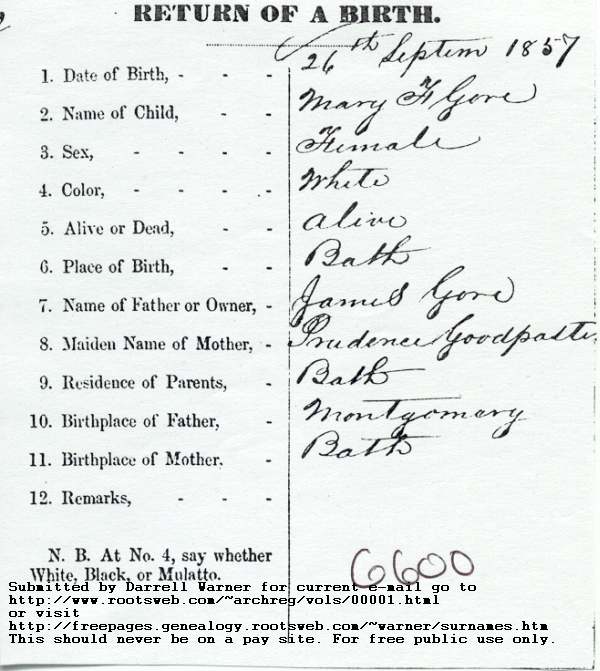 RETURN OF A BIRTH.
1. Date of Birth, - - - 26th Septem 1857
2. Name of Child, - - - Mary F Gore
3. Sex, - - - - Female
4. Color, - - - - White
5. Alive or Dead, - - alive
6. Place of Birth, - - Bath
7. Name of Father or Owner, - James Gore
8. Maiden Name of Mother, - Prudence Goodpaster
9. Residence of Parents, - Bath
10. Birthplace of Father, - Montgomary
11. Birthplace of Mother. - Bath
12. Remarks, - - -
N. B. At No. 4, say whether
White, Black, or Mulatto.
6600
Submitted by Darrell Warner for current e-mail go to
http://www.rootsweb.com/~archreg/vols/00001.html
or visit
http://freepages.genealogy.rootsweb.com/~warner/surnames.htm
This should never be on a pay site. For free public use only.